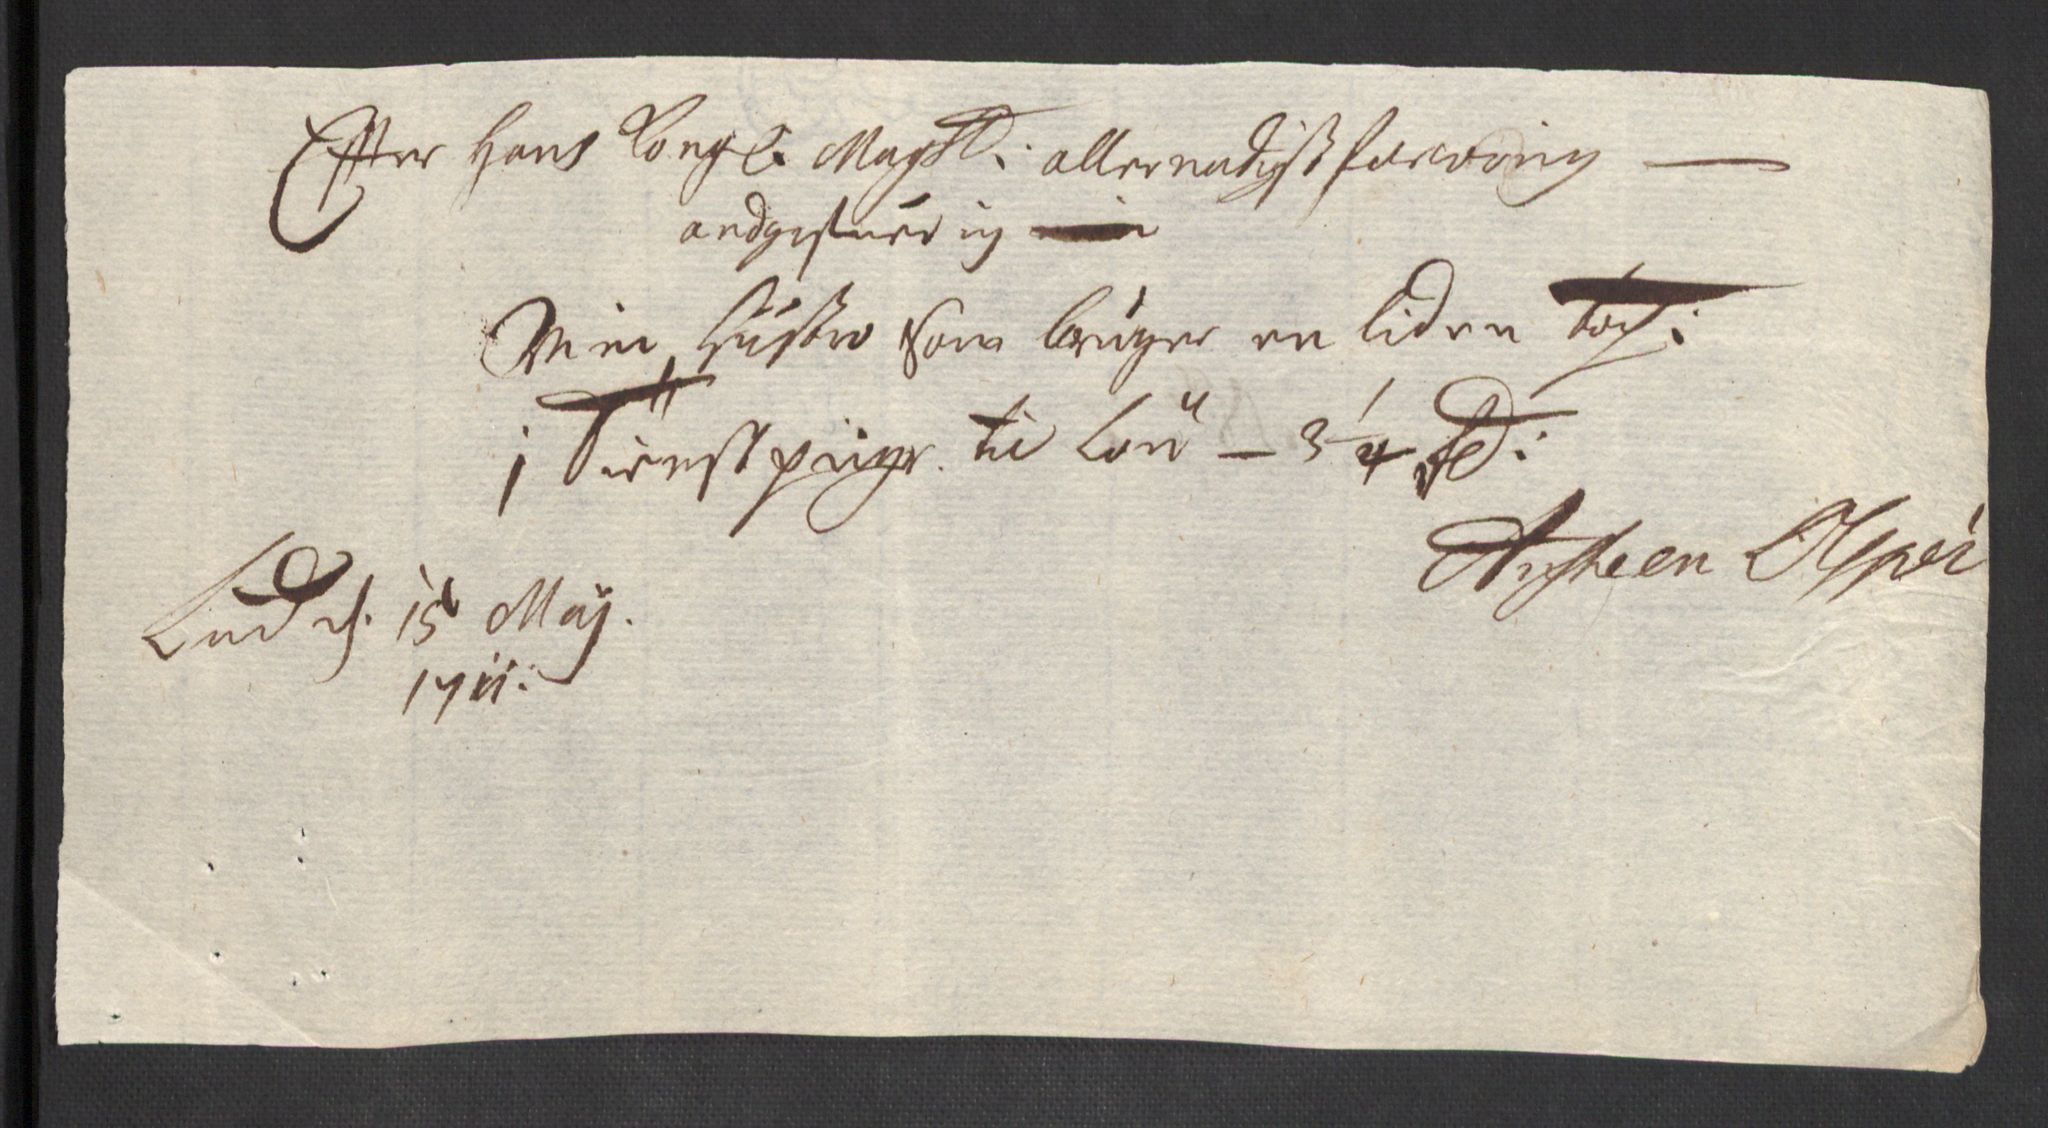 Efter Hans Kongl. Mayst: allernadigst forordning —
andgifuer ieg
Min Hustro som bruger en liden top:
1 Tienst piige. til Løn — 3 1/4 Rd:
Ansteen Olssøn
15 Maij.
1711: